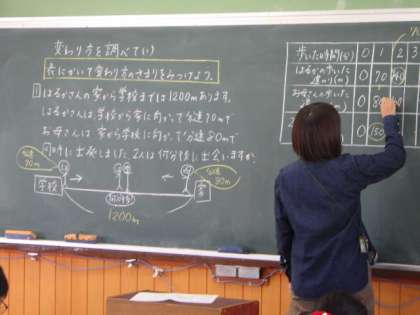 変わり方を調べていう
表にかいて変わり方のきまりをみつけよう。
1 はるかさんの家から学校までは1200mあります。
はるかさんは、学校から家に向かって分速70mで
お母さんは家から学校に向かって分速80mで
同時に出発しました。2人は何分後に出会いますか。
分速70m
分速80m
学校
家
何分後
1200m
歩いた時間(分) 0 1 2 3
はるかの歩いた道のり(m) 0 70
お母さんの歩いた 0 80
0 150